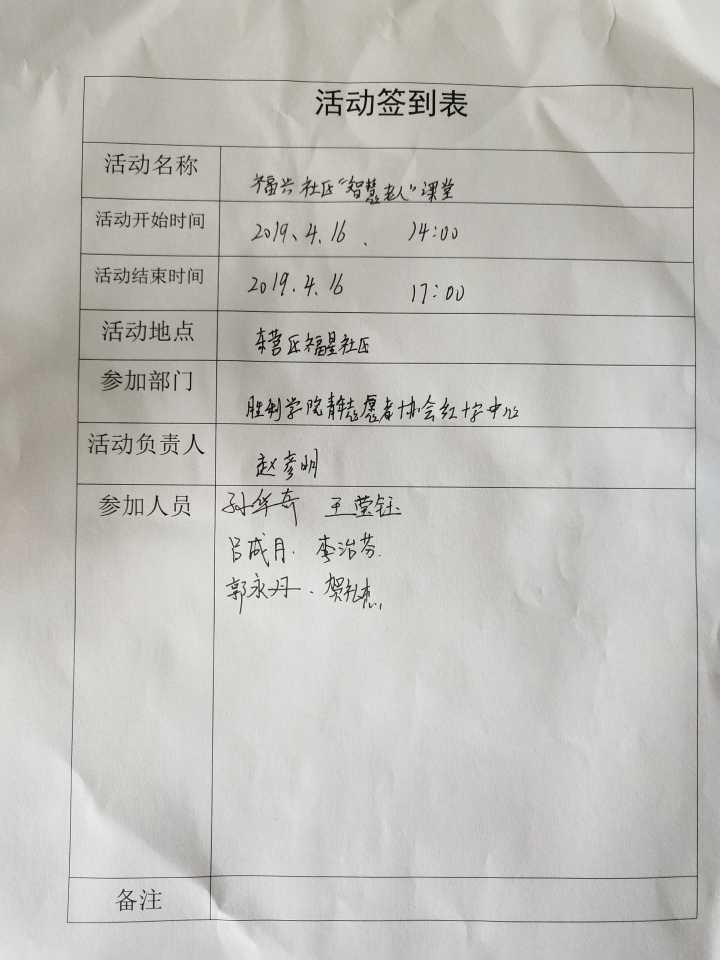 活动签到表
活动名称 福兴社区“智慧老人”课堂
活动开始时间 2019.4.16. 14:00
活动结束时间 2019.4.16 17:00
活动地点 东营区福星社区
参加部门 胜利学院青年志愿者协会红十字中心
活动负责人 赵彦明
参加人员 孙华奇 王莹钰
吕成月. 李治芬.
郭永丹. 贺礼
备注